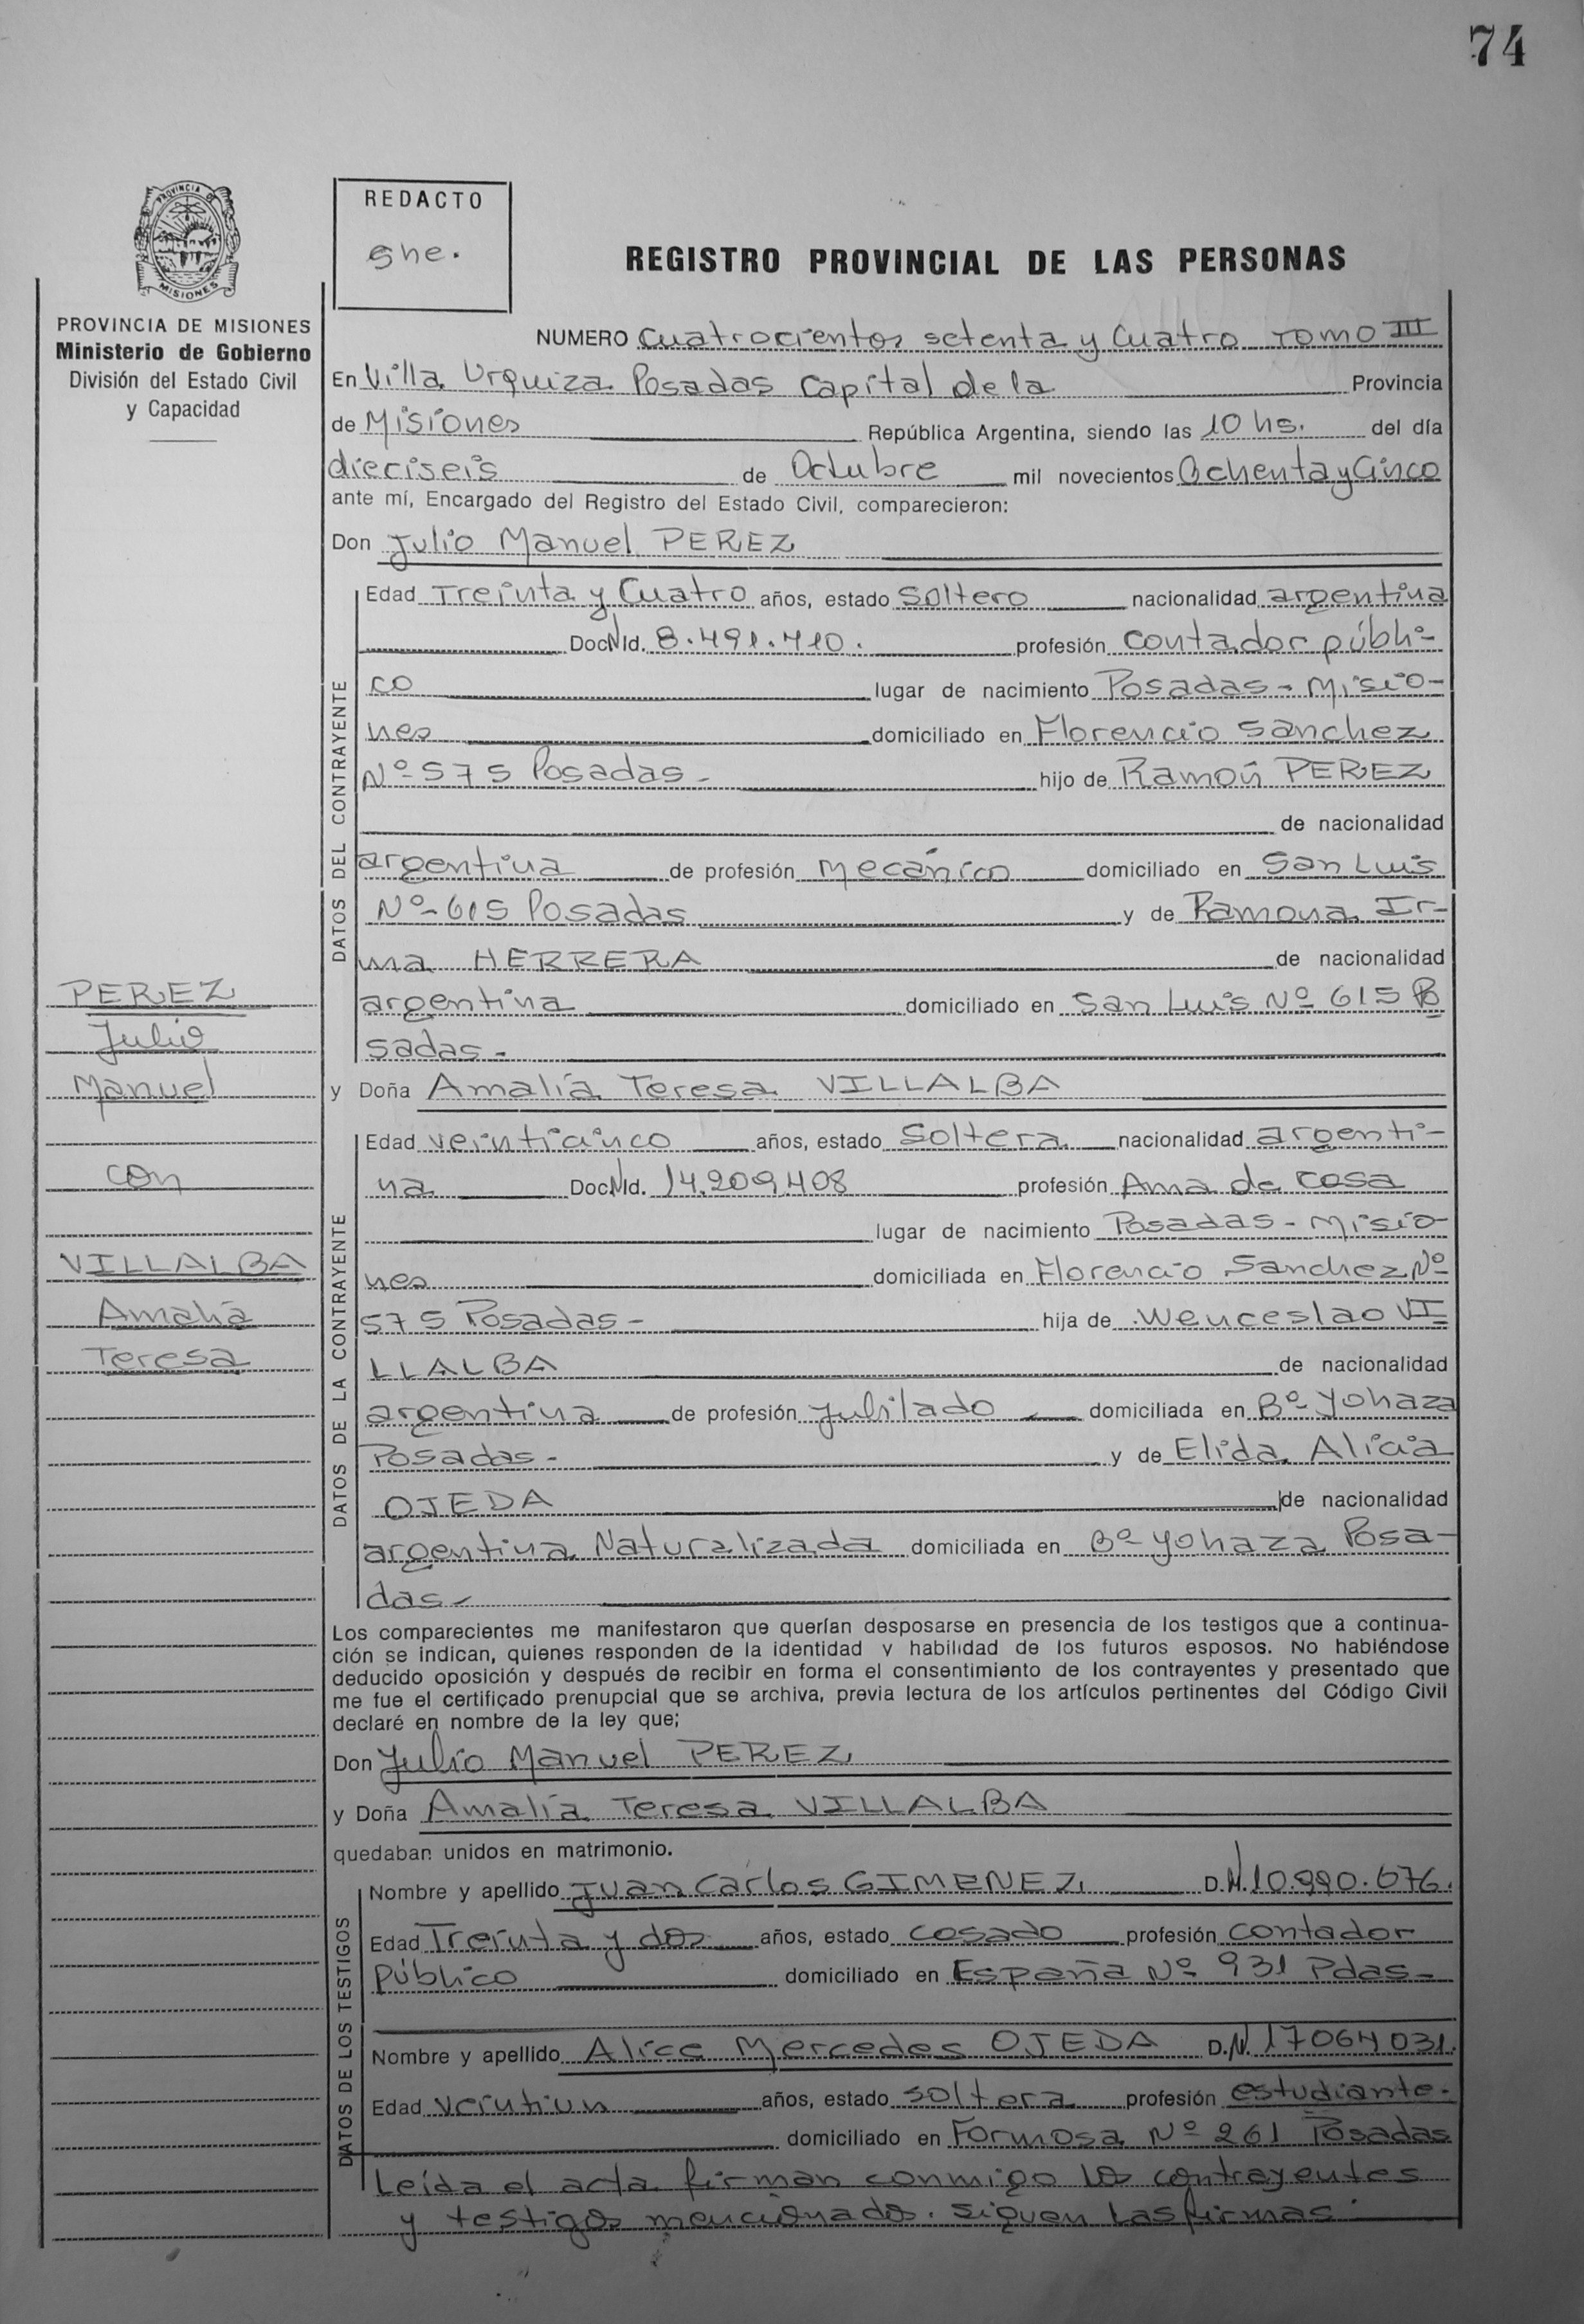 74
PROVINCIA DE
MISIONES
PROVINCIA DE MISIONES
Ministerio de Gobierno
División del Estado Civil
y Capacidad
REDACTO
She.
REGISTRO PROVINCIAL DE LAS PERSONAS
NUMERO Cuatrocientos setenta y Cuatro Tomo III
En Villa Urquiza Posadas Capital de la Provincia
de Misiones República Argentina, siendo las 10 hs. del día
dieciseis de Octubre mil novecientos Ochenta y Cinco
ante mí, Encargado del Registro del Estado Civil, comparecieron:
Don Julio Manuel PEREZ
DATOS DEL CONTRAYENTE
Edad Treinta y Cuatro años, estado Soltero nacionalidad argentina
Doc. Nid. 8.491.410. profesión Contador públi-
co lugar de nacimiento Posadas - Misio-
nes domiciliado en Florencio Sanchez
Nº 575 Posadas - hijo de Ramón PEREZ
de nacionalidad
argentina de profesión mecánico domiciliado en San Luis
Nº 615 Posadas y de Ramona Ir-
ma HERRERA de nacionalidad
argentina domiciliado en San Luis Nº 615 Po
sadas -
y Doña Amalia Teresa VILLALBA
DATOS DE LA CONTRAYENTE
Edad veinticinco años, estado Soltera nacionalidad argenti-
na Doc. Nid. 14.209.408 profesión Ama de casa
lugar de nacimiento Posadas - Misio-
nes domiciliada en Florencio Sanchez Nº
575 Posadas - hija de Wenceslao VI
LLALBA de nacionalidad
argentina de profesión jubilado domiciliada en Bº Yohaza
Posadas - y de Elida Alicia
OJEDA de nacionalidad
argentina Naturalizada domiciliada en Bº Yohaza Posa-
das -
Los comparecientes me manifestaron que querían desposarse en presencia de los testigos que a continua-
ción se indican, quienes responden de la identidad y habilidad de los futuros esposos. No habiéndose
deducido oposición y después de recibir en forma el consentimiento de los contrayentes y presentado que
me fue el certificado prenupcial que se archiva, previa lectura de los artículos pertinentes del Código Civil
declaré en nombre de la ley que;
Don Julio Manuel PEREZ
y Doña Amalia Teresa VILLALBA
quedaban unidos en matrimonio.
DATOS DE LOS TESTIGOS
Nombre y apellido Juan Carlos GIMENEZ D.N. 10.990.676.
Edad Treinta y dos años, estado casado profesión contador
Público domiciliado en España Nº 931 Pdas -
Nombre y apellido Alice Mercedes OJEDA D.N. 17064031.
Edad veintiun años, estado soltera profesión estudiante -
domiciliado en Formosa Nº 261 Posadas
Leída el acta firman conmigo los contrayentes
y testigos mencionados. Siguen las firmas:
PEREZ
Julio
Manuel
con
VILLALBA
Amalia
Teresa